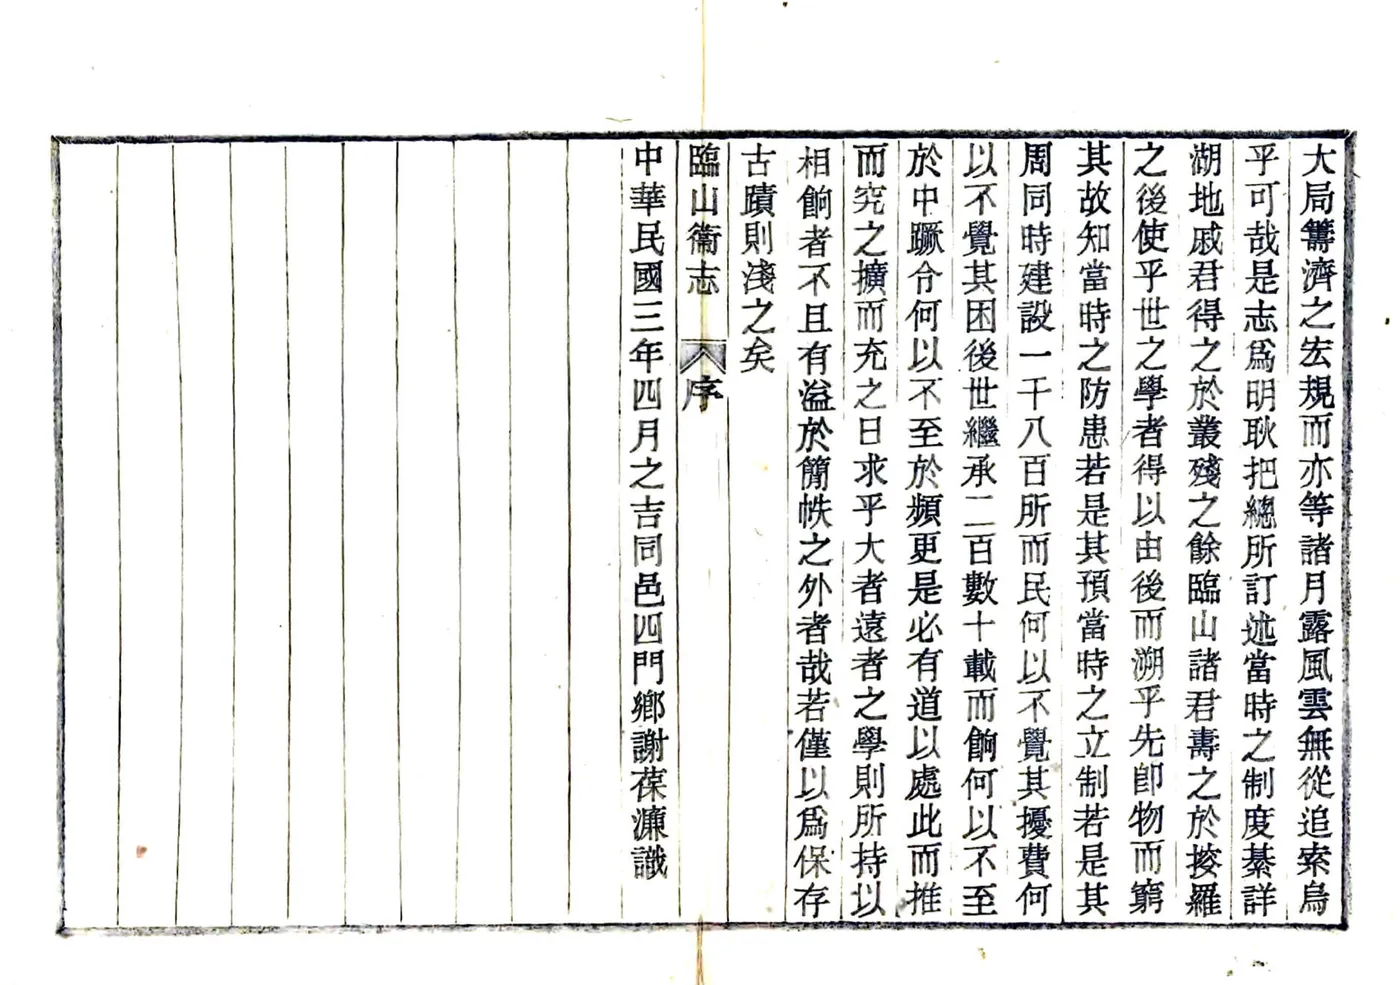 大局籌濟之宏規而亦等諸月露風雲無從追索烏
乎可哉是志爲明耿把總所訂述當時之制度綦詳
湖地戚君得之於叢殘之餘臨山諸君壽之於掞羅
之後使乎世之學者得以由後而溯乎先卽物而窮
其故知當時之防患若是其預當時之立制若是其
周同時建設一千八百所而民何以不覺其擾費何
以不覺其困後世繼承二百數十載而餉何以不至
於中蹶令何以不至於頻更是必有道以處此而推
而究之擴而充之日求乎大者遠者之學則所持以
相餉者不且有溢於簡帙之外者哉若僅以爲保存
古蹟則淺之矣
臨山衞志 序
中華民國三年四月之吉同邑四門鄉謝葆濂識